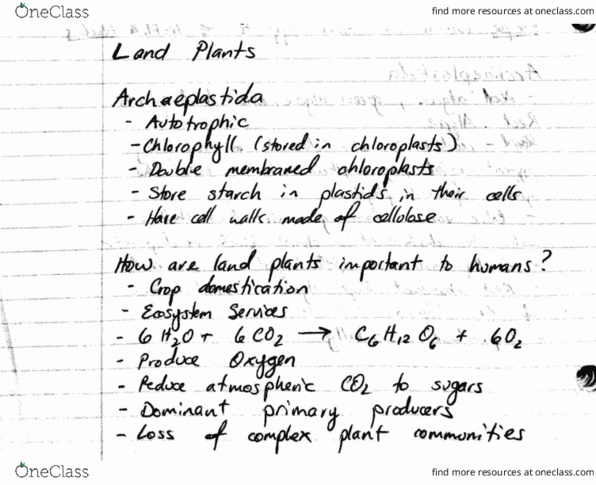 OneClass
find more resources at oneclass.com
Land Plants
Archaeplastida
- Autotrophic
- Chlorophyll (stored in chloroplasts)
- Double membraned chloroplasts
- Store starch in plastids in their cells
- Have cell walls made of cellolose
How are land plants important to humans?
- Crop domestication
- Ecosystem Services
- 6 H₂O + 6 CO₂ → C₆H₁₂O₆ + 6O₂
- Produce Oxygen
- Reduce atmospheric CO₂ to sugars
- Dominant primary producers
- Loss of complex plant communities
OneClass
find more resources at oneclass.com